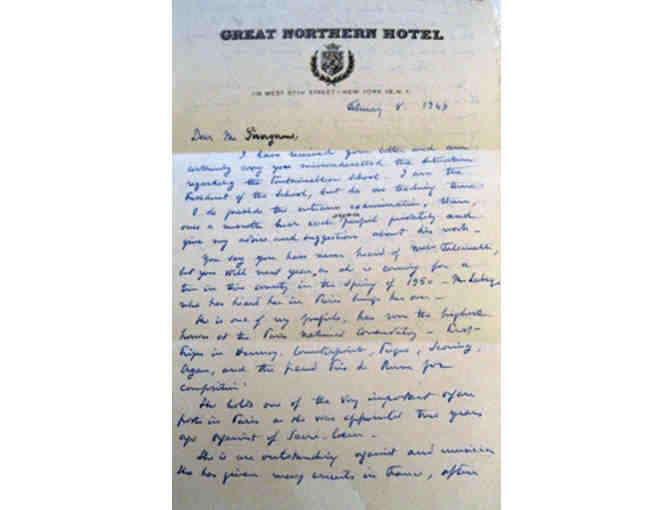 GREAT NORTHERN HOTEL
118 WEST 57TH STREET · NEW YORK 19, N.Y.
February 8 1949
Dear Mr
I have received your letter and am
certainly sorry you misunderstood the situation
regarding the Fontainebleau School. I am the
President of the School, but do no teaching there
I do preside the entrance examination, then,
once a month hear each organ pupil privately and
give my advice and suggestions about his work.
You say you have never heard of
but you will next year, as she is coming for a
tour in this country in the Spring of 1950 - Mr
who has heard her in Paris brings her over -
She is one of my pupils, has won the highest
honors at the Paris National Conservatory - First
Prizes in Harmony, Counterpoint, Fugue,
Organ, and the Grand Prix de Rome for
composition
She holds one of the very important organ
posts in Paris as she was appointed two years
ago organist of Sacré-Coeur -
She is an outstanding organist and musician
She has given many concerts in France, often